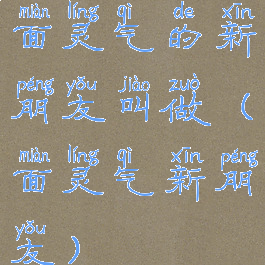 miàn líng qì de xīn
面灵气的新
péng yǒu jiào zuò
朋友叫做（
miàn líng qì xīn péng
面灵气新朋
yǒu
友）